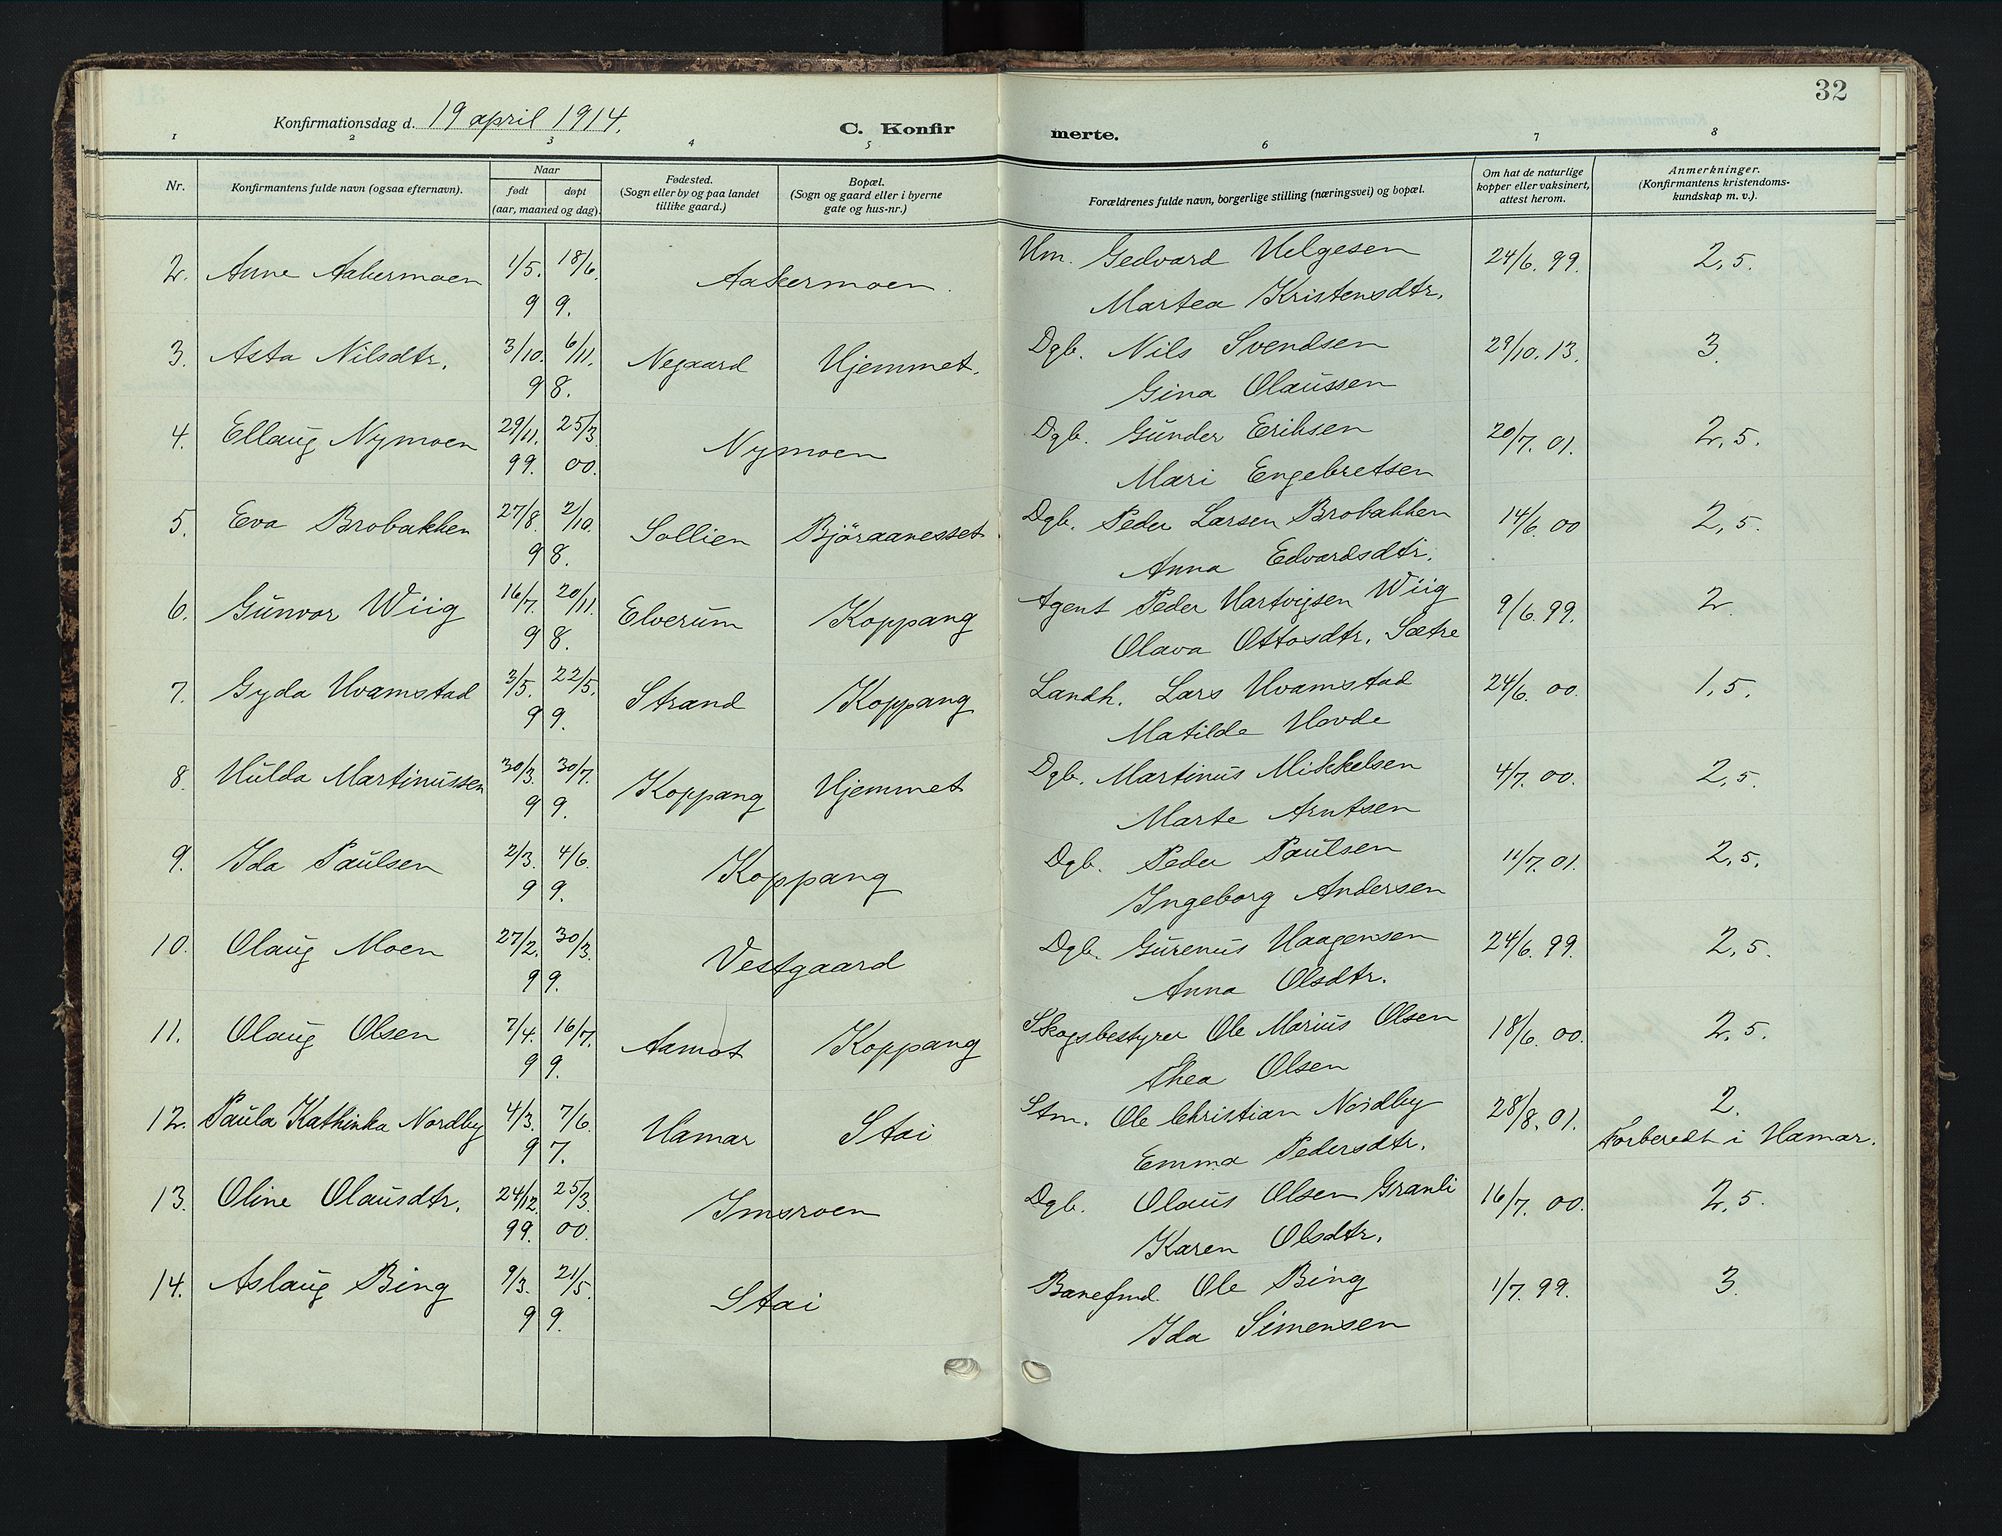 32
Konfirmationsdag d. 19 april 1914.
C. Konfir merte.
1 2 3 4 5 6 7 8
Nr.
Konfirmantens fulde navn (ogsaa efternavn).
Naar
født døpt
(aar, maaned og dag).
Fødested.
(Sogn eller by og paa landet
tillike gaard.)
Bopæl.
(Sogn og gaard eller i byerne
gate og hus-nr.)
Forældrenes fulde navn, borgerlige stilling (næringsvei) og bopæl.
Om hat de naturlige
kopper eller vaksinert,
attest herom.
Anmerkninger.
(Konfirmantens kristendoms-
kundskap m. v.).
2. Anne Aakermoen 1/5. 18/6. Aakermoen. Hm. Gedvard Helgesen 24/6. 99. 2,5.
9 9. Martea Kristensdtr.
3. Asta Nilsdtr. 3/10. 6/11. Negaard Hjemmet. Dgb. Nils Svendsen 29/10. 13. 3.
9 8. Gina Olaussen
4. Ellaug Nymoen 29/11. 25/3 Nymoen Dgb. Gunder Eriksen 20/7. 01. 2,5.
99. 00. Mari Engebretsen
5. Eva Brobakken 27/8. 2/10. Sollien Björaanesset. Dgb. Peder Larsen Brobakken 14/6. 00 2,5.
9 8. Anna Edvardsdtr.
6. Gunvor Wiig 16/7. 20/11. Elverum Koppang Agent Peder Hartvigsen Wiig 9/6. 99. 2.
9 8. Olava Ottosdtr. Sætre
7. Gyda Hvamstad 3/5. 22/5. Strand Koppang Landh. Lars Hvamstad 24/6. 00. 1,5.
9 9. Matilde Hovde
8. Hulda Martinussen 30/3. 30/7. Koppang Hjemmet Dgb. Martinus Mikkelsen 4/7. 00. 2,5.
9 9. Marte Arntsen
9. Ida Paulsen 2/3. 4/6. Koppang Dgb. Peder Paulsen 11/7. 01. 2,5.
9 9. Ingeborg Andersen
10. Olaug Moen 27/2. 30/3. Vestgaard Dgb. Gurenus Haagensen 24/6. 99. 2,5.
9 9. Anna Olsdtr.
11. Olaug Olsen 7/4. 16/7. Aamot Koppang Skogsbestyrer Ole Marius Olsen 18/6. 00. 2,5.
9 9. Thea Olsen
12. Paula Kathinka Nordby 4/3. 7/6. Hamar Stai Stm. Ole Christian Nordby 28/8. 01. 2.
9 7. Emma Pedersdtr. Forberedt i Hamar.
13. Oline Olausdtr. 24/12. 25/3. Imsroen Dgb. Olaus Olsen Granli 16/7. 00. 2,5.
99. 00. Karen Olsdtr.
14. Aslaug Bing 9/3. 21/5. Stai Banefmd. Ole Bing 1/7. 99. 3.
9 9. Ida Simensen